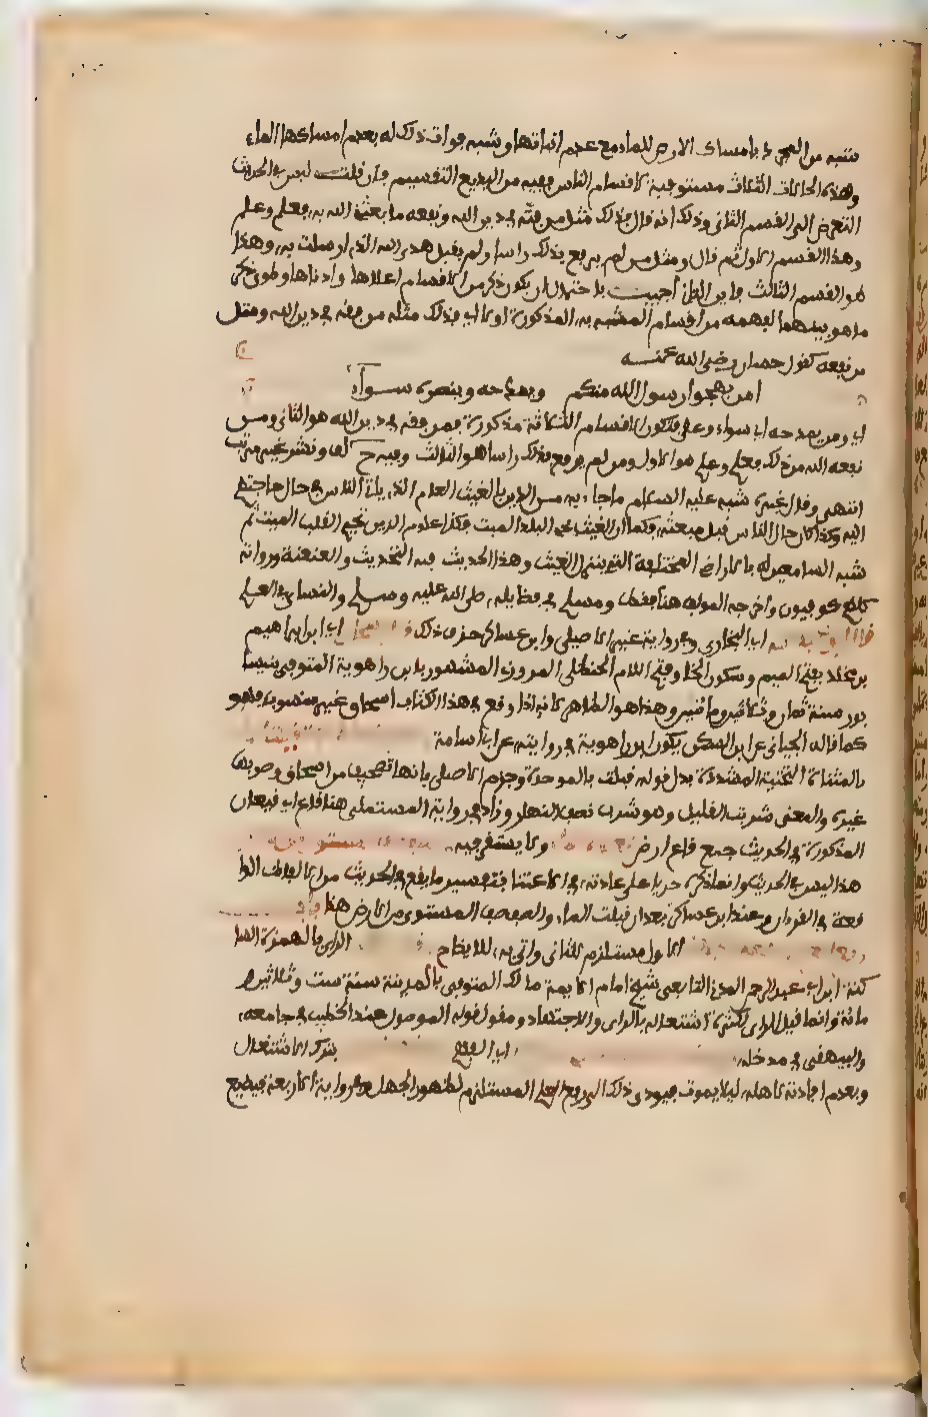 شبه من الهدى بامساك الارض للماء مع عدم انباتها وشبه فوات ذلك له بعدم امساكها الماء
وهذه الحالات الثلاث مستوفية لاقسام الناس ففيه من البديع التقسيم فان قلت ليس في الحديث
التعرض الى القسم الثاني وذلك انه قال فذلك مثل من فقه في دين الله ونفعه ما بعثني الله به فعلم وعلم
وهذا القسم الاول ثم قال ومثل من لم يرفع بذلك راسا ولم يقبل هدى الله الذي ارسلت به وهذا
هو القسم الثالث فاين الثاني اجيب باحتمال ان يكون ذكر من الاقسام اعلاها وادناها وطوى ذكر
ما هو بينهما لفهمه من اقسام المشبه به المذكورة اولا اي فذلك مثله من فقه في دين الله ومثل
من نفعه كقول حسان رضي الله عنه
امن يهجوا رسول الله منكم ويمدحه وينصره سواء
اي ومن يمدحه اي سواء وعلى فتكون الاقسام الثلاثة مذكورة فمن فقه في دين الله هو الثاني ومن
نفعه الله من ذلك فعلم وعلم هو الاول ومن لم يرفع بذلك راسا هو الثالث وفيه ح لف ونشر غير مرتب
انتهى وقال غيره شبه عليه السلام ما جاء به من الدين بالغيث العام الذي ياتي الناس في حال حاجتهم
اليه وكذا كان حال الناس قبل مبعثه فكما ان الغيث يحيي البلد الميت فكذا علوم الدين تحيي القلب الميت ثم
شبه السامعين له بالاراضي المختلفة التي ينزل الغيث وهذا الحديث فيه التحديث والعنعنة ورواته
كلهم كوفيون واخرجه المولف هنا فقط ومسلم في فضايله صلى الله عليه وسلم والنساي في العلم
اي البخاري وفي رواية غير الاصيلي وابن عساكر حذف ذلك اي ابراهيم
بن مخلد بفتح الميم وسكون الخا وفتح اللام الحنظلي المروزي المشهور بابن راهوية المتوفى بنيسا
بور سنة ثمان وثلاثين وماتين وهذا هو الظاهر لانه اذا وقع في هذا الكتاب اسحاق غير منسوب فهو
كما قاله الجياني عن ابن السكن يكون ابن راهوية في روايته عن ابي اسامة
بالمثناة التحتية المشددة بدل قوله قبلت بالموحدة وجزم الاصيلي بانها تصحيف من اسحاق وصوبها
غيره والمعنى شربت القليل وهو شرب نصف النهار وزاد في رواية المستملي هنا قاع اي قيعان
المذكورة في الحديث جمع قاع ارض ولا يستقر فيه
هذا ليس في الحديث وانما ذكره جريا على عادته في الاعتنا بتفسير ما يقع في الحديث من الالفاظ الوا
قعة في القران وعند ابن عساكر بعد ان قبلت الماء والصفصف المستوي من الارض هذا
الاول مستلزم للثاني واتى به للايضاح الراي بالهمزة السا
كنة ابن ابي عبد الرحمن المدني التابعي شيخ امام الايمة مالك المتوفى بالمدينة سنة ست وثلاثين و
مائة وانما قيل الراي لكثرة اشتغاله بالراي والاجتهاد ومقول قوله الموصول عند الخطيب في جامعه
والبيهقي في مدخله اي الفهم بترك الاشتغال
وبعدم افادته لاهله ليلا يموت فيودي ذلك الى رفع العلم المستلزم لظهور الجهل وفي رواية الاربعة فيضيع